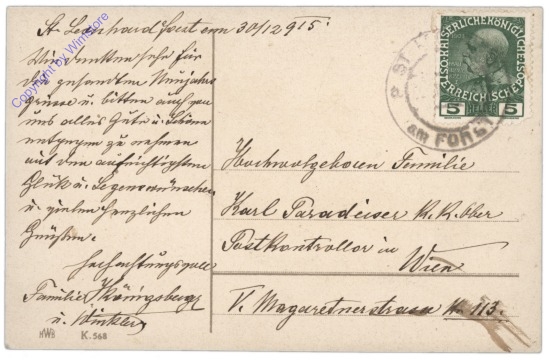 St. Leonhard Forst am 30/12 915.
Wir danken sehr für
die gesandten Neujahrs
grüsse u. bitten auch von
uns alles Gute u. Schöne
entgegen zu nehmen
mit den aufrichtigsten
Glück u. Segenswünschen
u. vielen herzlichen
Grüßen.
Hochachtungsvoll
Familie Königsberger
u. Winkler
MWB K. 568
Copyright by Winstore
KAISERLICHE KÖNIGLICHE
ÖSTERREICHISCHE POST
5 HELLER 5
ST. L
am FORST
Hochwolgeboren Familie
Karl Paradeiser K. K. Ober
Postkontrollor in
Wien
V. Margaretnerstrasse N. 113.